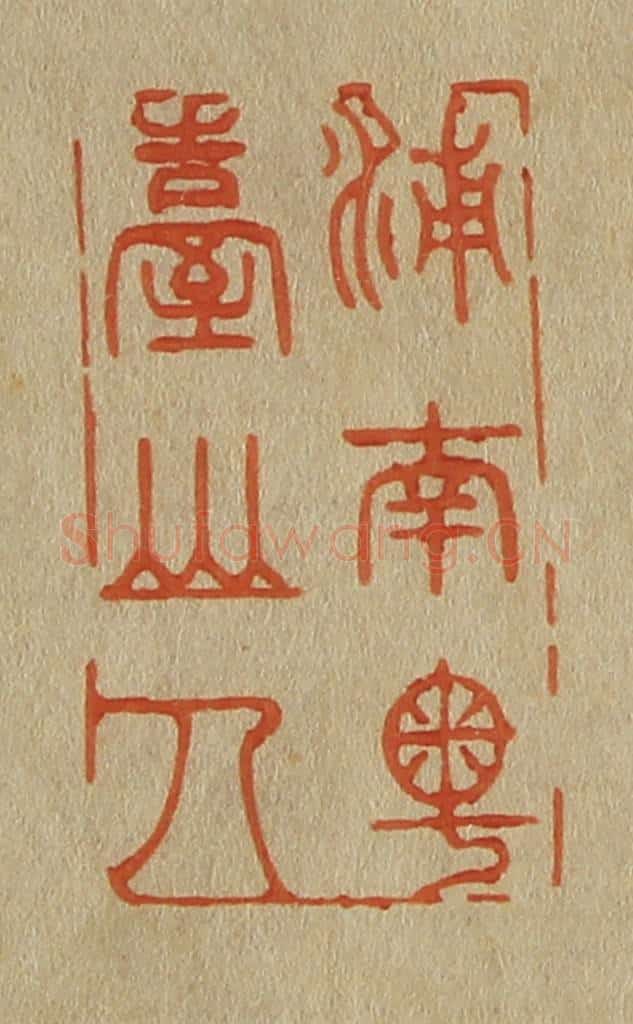 浦南粤
臺山人
Shufawang.CN